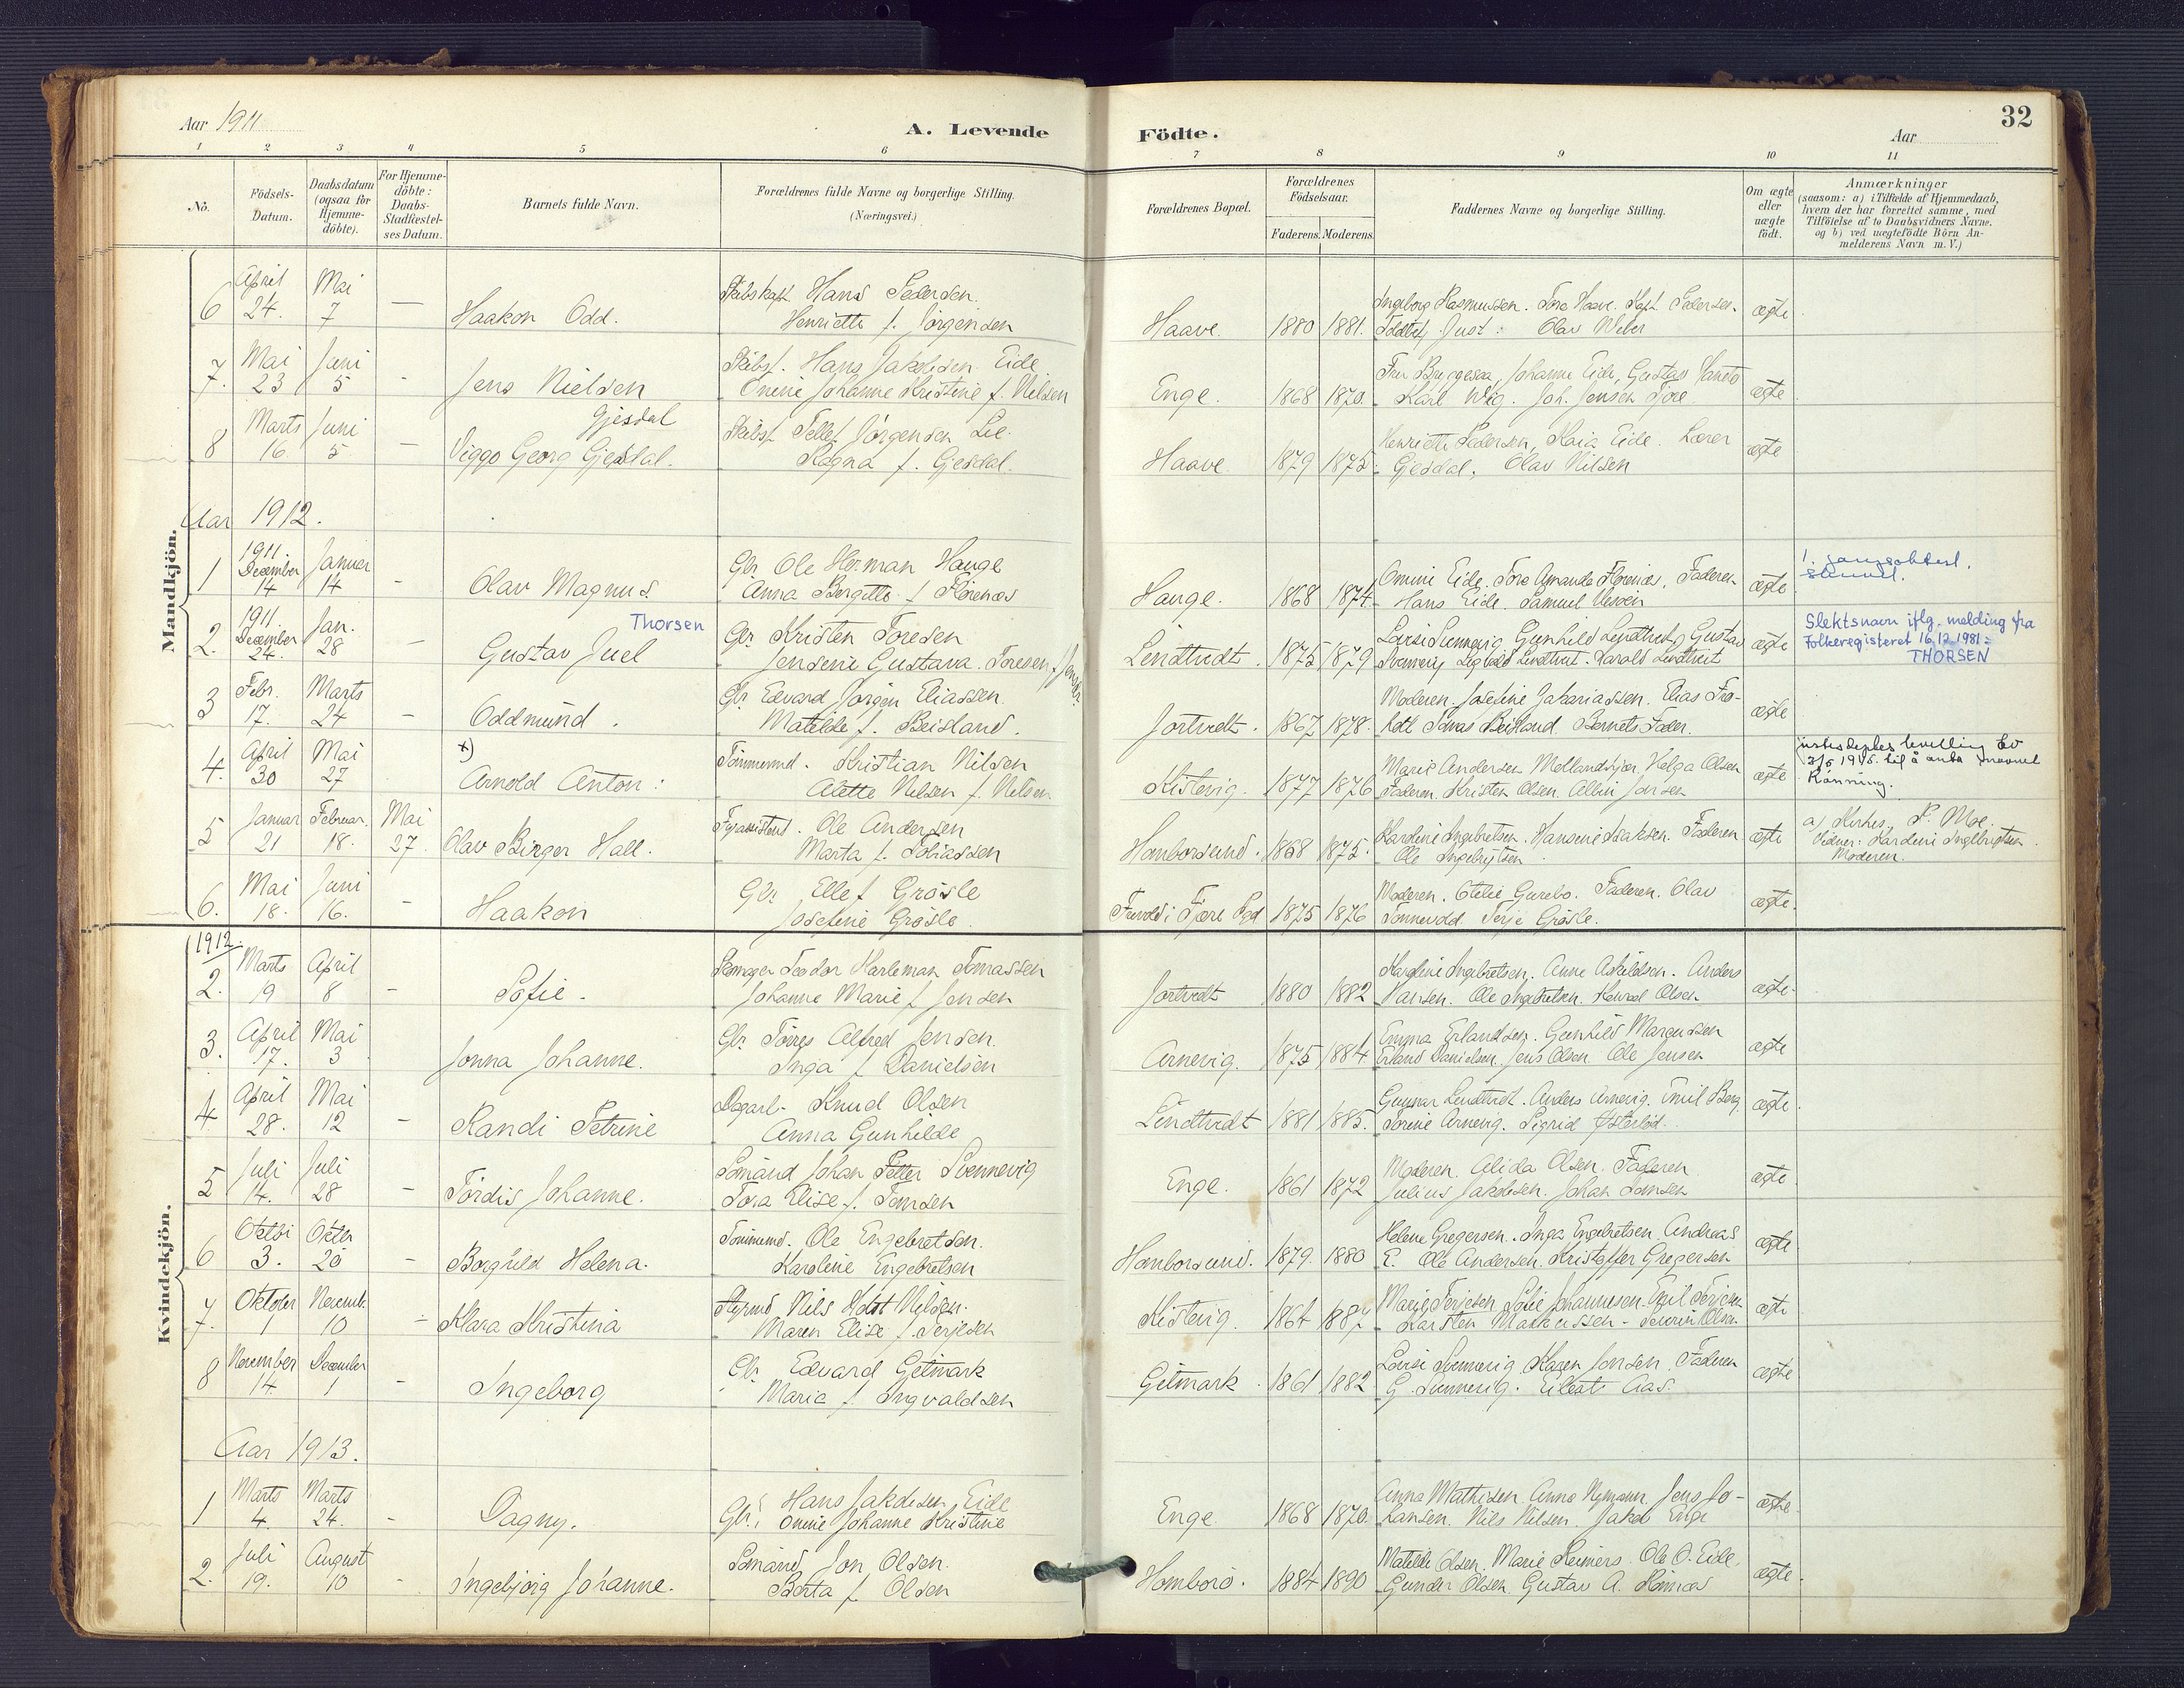 Aar 1911
A. Levende
Födte.
Aar
32
1 2 3 4 5 6 7 8 9 10 11
No.
Födsels-
Datum.
Daabsdatum
(ogsaa for
Hjemme-
döbte).
For Hjemme-
döbte:
Daabs-
Stadfæstel-
ses Datum.
Barnets fulde Navn.
Forældrenes fulde Navne og borgerlige Stilling.
(Næringsvei.)
Forældrenes Bopæl.
Forældrenes
Födselsaar.
Faderens. Moderens.
Faddernes Navne og borgerlige Stilling.
Om ægte
eller
uægte
födt.
Anmærkninger
(saasom: a) i Tilfælde af Hjemmedaab,
hvem der har forrettet samme, med
Tilföielse af to Daabsvidners Navne,
og b) ved uægtefödte Börn An-
melderens Navn m. V.)
Mandkjön.
April Mai Skibskapt. Hans Pedersen. Ingeborg Rasmussen. Tora Haave. Kapt. Pedersen.
6 24. 7 — Haakon Odd. Henriette f. Jörgensen Haave. 1880 1881. Just. Olav Weber ægte
Mai Juni Skibsf. Hans Jakobsen Eide Johanne Eide, Gustav
7. 23 5 - Jens Nielsen Omine Johanne Kristine f. Nilsen Enge. 1868 1870. Karl Wig. Joh. Jensen Fjære ægte
Gjesdal
Marts Juni Skibsf. Tellef Jörgensen Lie. Henriette Pedersen, Maria Eide. Lærer
8 16. 5. — Viggo Georg Gjesdal. Ragna f. Gjesdal. Haave 1879 1875. Gjesdal, Olav Nilsen ægte
Aar 1912.
1911
December Januar Gbr Ole Herman Hauge Omine Eide. Tora Amanda Flörenæs. Faderen
1 14 14 - Olav Magnus Anna Bergitte f. Flörenæs Hauge. 1868 1874. Hans Eide. Samuel ægte
1911. Thorsen
December Jan. Gbr. Kristen Toresen Gunhild Lindtveit, Gustav
2. 24. 28 — Gustav Juel Jensine Gustava Toresen f. Jensen. Lindtvedt. 1875 1879 Svennevig Lindtveit. Harald Lindtveit ægte
Slektsnavn iflg. melding fra
Folkeregisteret 16.12.1981 =
THORSEN
Febr. Marts Gbr. Edvard Jörgen Eliassen. Moderen. Josefine Zakariassen. Elias
3 17. 24 — Oddmund. Matilde f. Beisland. Jortvedt. 1867 1878. Jonas Beisland. Barnets Fader. ægte
April Mai x) Tömmermd. Kristian Nilsen Marie Andersen Mellandskjær. Helga Olsen
4. 30 27 Arnold Anton. Alette Nilsen f. Nilsen. Kistevig. 1877 1876 Faderen. Kristen Olsen. Jensen ægte
Rönning.
Januar Februar. Mai Fyrassistent. Ole Andersen Karoline Ingebretsen. Hansine Isaksen. Faderen
5 21 18. 27. Olav Birger Hall. Marta f. Tobiassen Homborsund. 1868 1875. Ole Ingebrigtsen ægte
a) Kirkes. P. Moe.
Vidner: Karoline Ingebrigtsen
Moderen.
Mai Juni Gbr Ellef Grösle Moderen. Otilie Gurebo. Faderen. Olav
6. 18. 16. - Haakon Josefine Grösle. i Fjære 1875 1876 Tönnevold Terje Grösle. ægte.
Kvindekjön.
1912.
Marts April Teodor Harleman Tomassen Karoline Ingebretsen. Anne Askildsen. Anders
2. 19 8 - Sofie. Johanne Marie f. Jensen Jortvedt 1880 1882 Hansen. Ole Ingebretsen. Konrad Olsen ægte.
April Mai Gbr. Törres Alfred Jensen. Emma Erlandsen. Gunhild Marcussen
3. 17. 3 Jonna Johanne. Inga f. Danielsen Arnevig. 1875 1884. Erland Danielsen. Jens Olsen. Ole Jensen ægte
April Mai Dagarb. Knud Olsen Gunnar Lindtvedt. Anders Arnevig. Emil Berg.
4 28. 12 - Randi Petrine Anna Gunhilde Lindtvedt 1881 1885. Torine Arnevig. Sigrid ægte.
Juli Juli Sömand Johan Petter Svennevig Moderen. Alida Olsen. Faderen
5 14. 28 - Tordis Johanne. Tora Elise f. Tomsen Enge. 1861 1872 Julius Jakobsen. Johan ægte
Oktbr Oktbr Tömmermd. Ole Engebretsen. Helene Gregersen. Inga Engebretsen. Andreas
6 3. 20 - Borghild Helena. Karoline Engebretsen Homborsund. 1879. 1880 E. Ole Andersen. Kristoffer Gregersen ægte
Oktober Novemb. Styrmd. Nils Holst Nilsen. Marie Terjesen Sofie Johannesen.
7. 1 10 - Klara Kristina Maren Elise f. Terjesen Kistevig. 1864 1887 Karsten Markussen - Olsen ægte
November December Gbr. Edvard Gitmark Svennevig. Karen Jensen. Faderen
8 14. 1 - Ingeborg Maria f. Ingvaldsen Gitmark 1861 1882 G. Svennevig. Eilert Aas. ægte
Aar 1913.
Marts Marts Hans Jakobsen Eide Anna Mathisen. Anna Nymann. Jens Jo-
1 4. 24. - Dagny. Gbr. Omine Johanne Kristine Enge 1868 1870. hansen. Nils Nilsen. Jakob Enge ægte.
Juli August Sömand Jon Olsen. Matilde Olsen, Marie Reimers. Ole O. Eide.
2. 19. 10 - Ingebjorg Johanne. Berta f. Olsen Homborö. 1884 1890 Gunder Olsen. Gustav A. ægte.